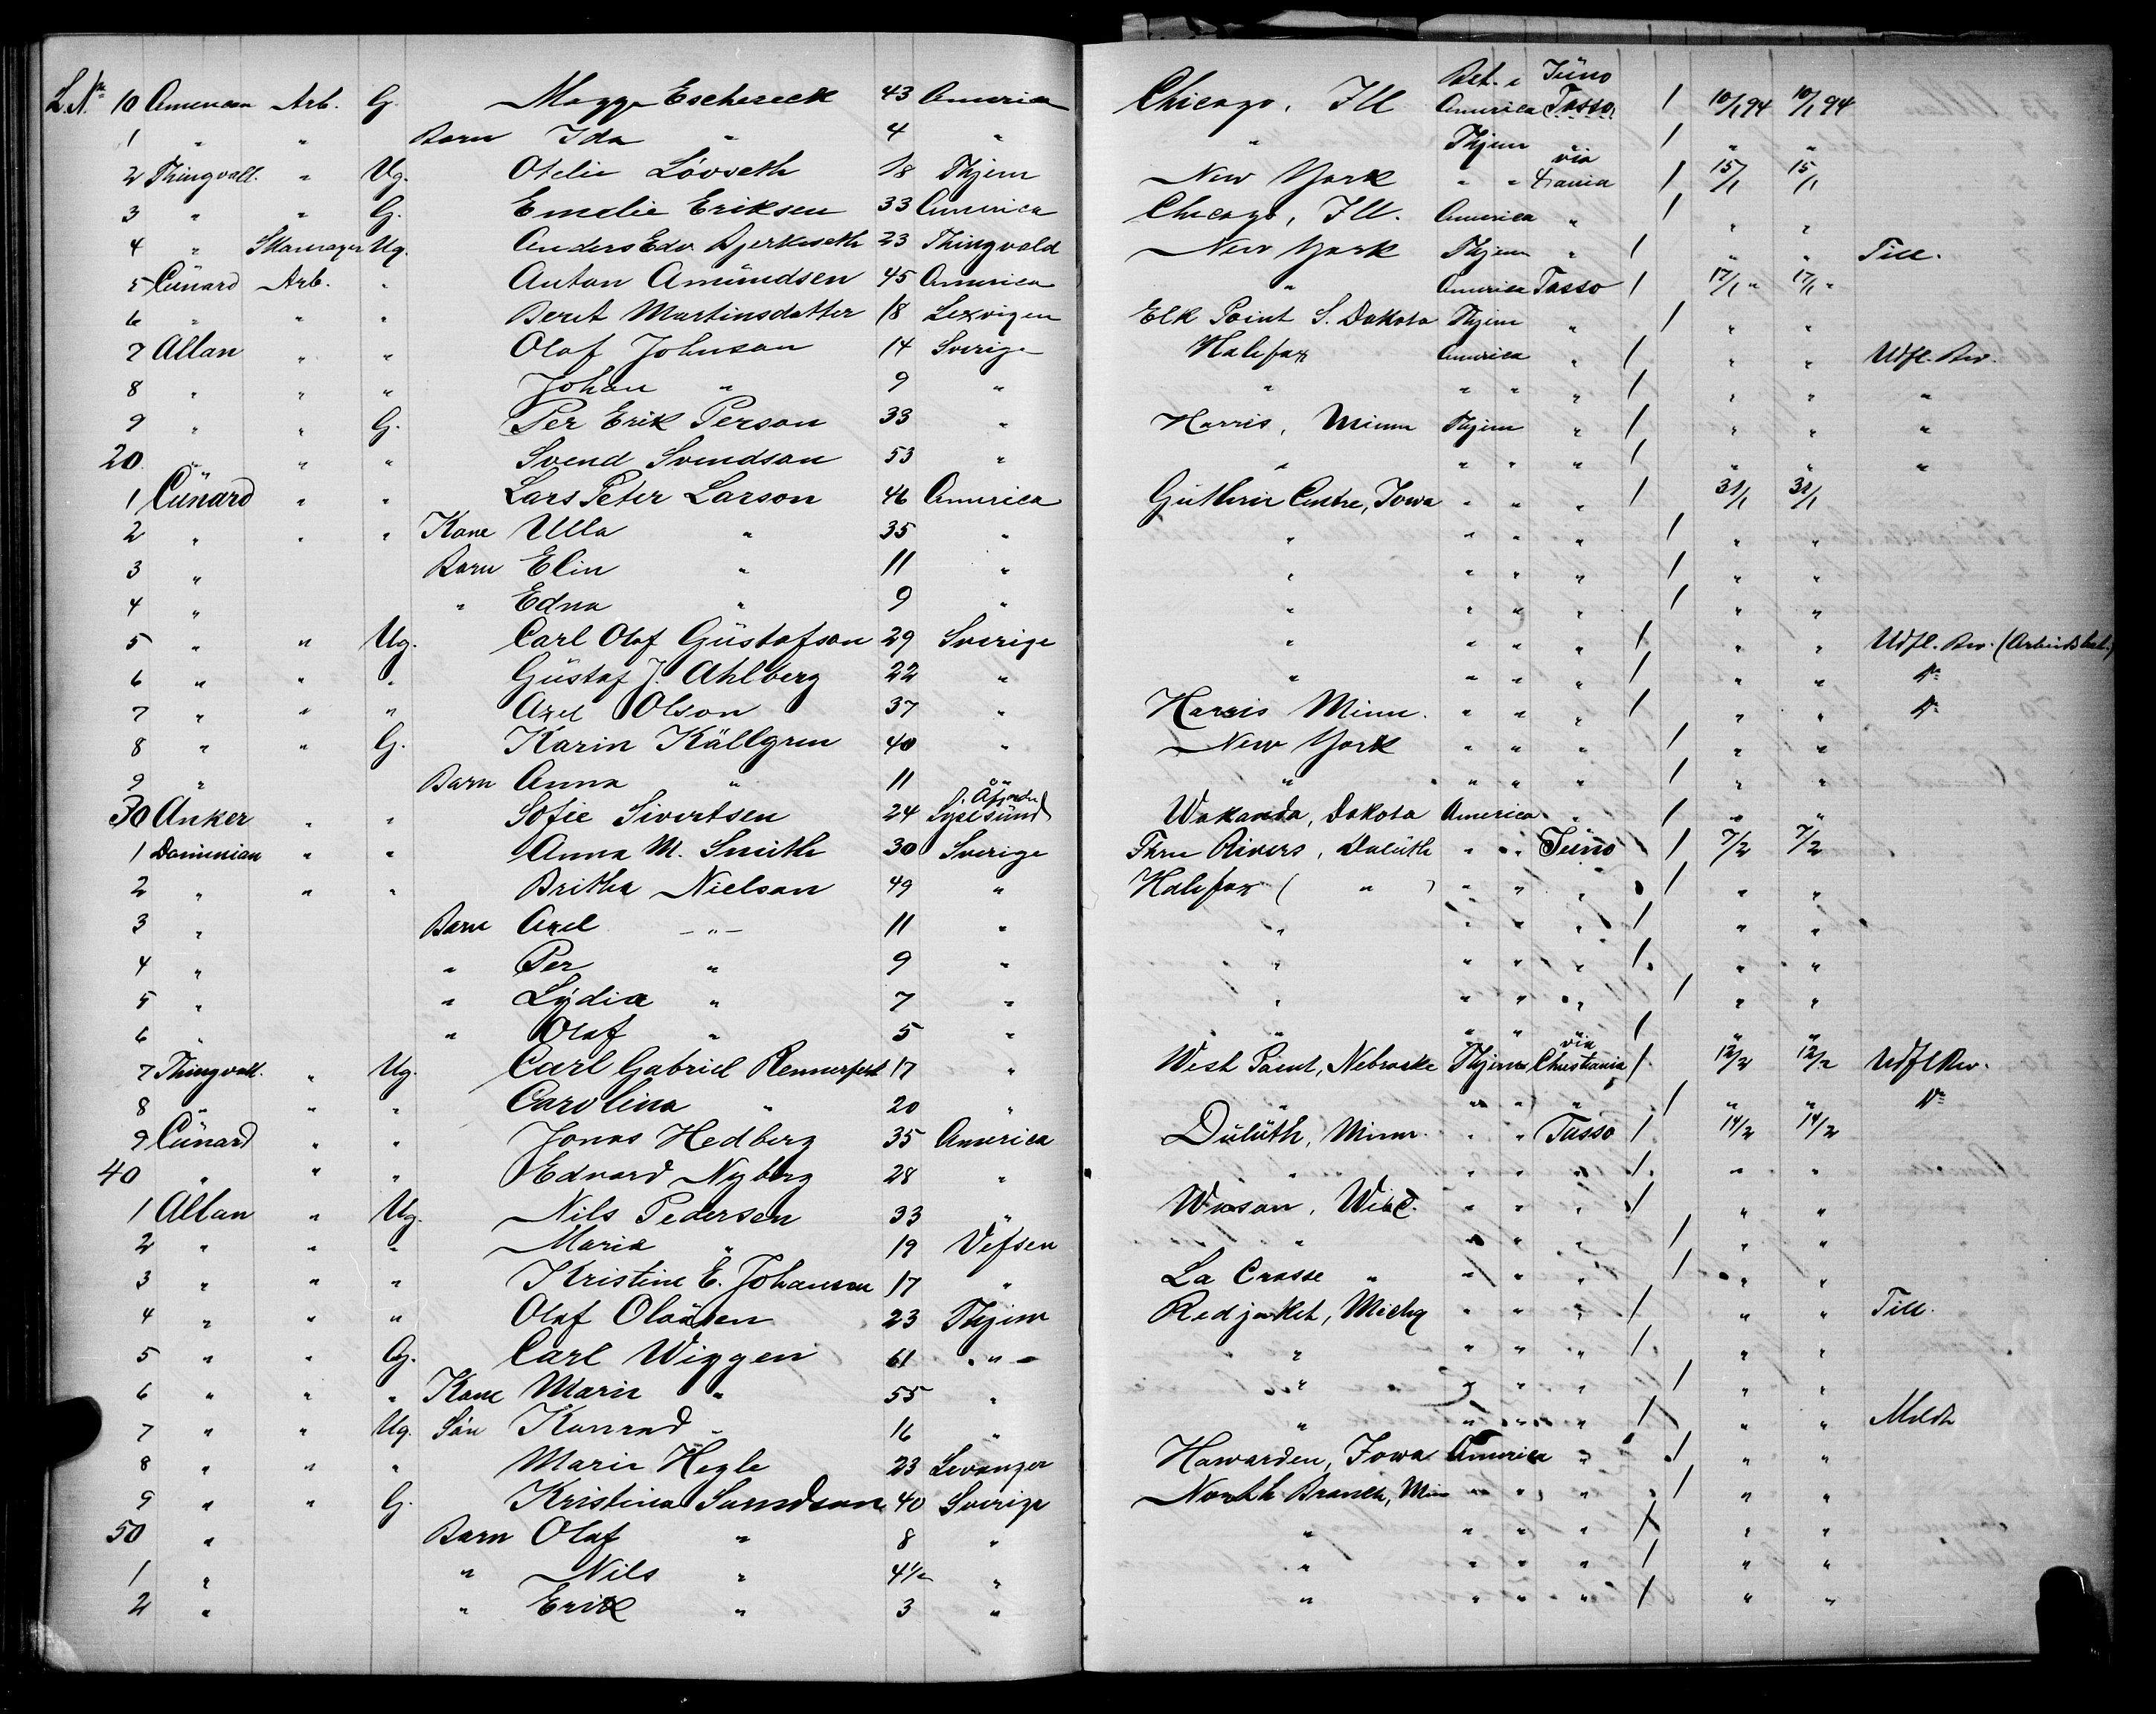 L.No 10 American Arb. G. Magge Eschereck 43 America Chicago, Ill Bet. i America Juno Tasso / 10/1 94 10/1 94
1 " " Barn Ida " 4 " " Thjem / " "
2 Thingvall. " Ug. Otelie Lövseth 18 Thjem New York " " via Xania / 15/1 15/1
3 " " G. Emelie Eriksen 33 America Chicago, Ill. America " / " "
4 " Skomager Ug. Anders Edv Bjerkeseth 23 Thingvold New York Thjem " / " " Till.
5 Cunard Arb. " Anton Amundsen 45 America " America Tasso / 17/1 " 17/1 "
6 " " " Beret Martinsdatter 18 Lexvigen Elk Point S. Dakota Thjem " / " "
7 Allan " " Olof Johnson 14 Sverige Halifax America " / " " Udfl. Bev.
8 " " " Johan " 9 " " " " " / " " "
9 " " G. Per Erik Person 33 " Harris, Minn Thjem " / " " "
20 " " " Svend Svendson 53 " " " " " / " " "
1 Cunard " " Lars Peter Larson 46 America Guthrie Centre, Iowa " " " / 31/1 31/1
2 " " " Kone Ulla " 35 " " " " " / " "
3 " Barn Elin " 11 " " " " " / " "
4 " " Edna " 9 " " " " " / " "
5 " " Ug. Carl Olof Gustafson 29 Sverige " " " " / " " Udfl. Bev. (Arbeidsbet.)
6 " " " Gustaf J. Ahlberg 22 " " " " " / " " Do
7 " " " Axel Olson 37 " Harris Minn. " " " / " " Do
8 " " G. Karin Källgren 40 " New York " " " / " "
9 " Barn Anna " 11 " " " " " / " "
30 Anker " " Sofie Sivertsen 24 Afjorden Wakanda, Dakota America " / " "
1 Dominion " " Anna M. Smith 30 Sverige Three Rivers, Duluth " " Juno / 7/2 7/2
2 " " " Britha Nielson 49 " Halifax ( " ) " " " / " "
3 " Barn Axel -"- 11 " " " " " / " "
4 " " Per " 9 " " " " " / " "
5 " " Lydia " 7 " " " " " / " "
6 " " Olof " 5 " " " /
7 Thingvall. " Ug. Carl Gabriel Rennerfelt 17 " West Point, Nebraske Thjem via Christiania / 12/2 12/2 Udfl Bev.
8 " " " Carolina " 20 " " " " / " " Do
9 Cunard " " Jonas Hedberg 35 America Duluth, Minn. " " Tasso / 14/2 14/2
40 " " " Edvard Nyberg 28 " " " " " / " "
1 Allan " Ug. Nils Pedersen 33 " Wausau, Wisc. " " " / " "
2 " " " Maria " 19 Vefsen " " " " / " "
3 " " " Kristine E. Johansen 17 " La Crosse " " " " / " "
4 " " " Olaf Olaüsen 23 Thjem Redjacket, Michg " " " / " " Till.
5 " " G. Carl Wiggen 61 " " " " " / " "
6 " " " Kone Marie " 55 " " " " " / " "
7 " " Ug. Sön Konrad " 16 " " " " " / " " Meldt
8 " " " Marie Hegle 23 Levanger Hawarden, Iowa America " / " "
9 " " G. Kristina Sundson 40 Sverige North Branch, Min " " " / " "
50 " Barn Olof " 8 " " " " " / " "
1 " " Nils " 4½ " " " " " / " "
2 " " Erik " 3 " " " " " / " "